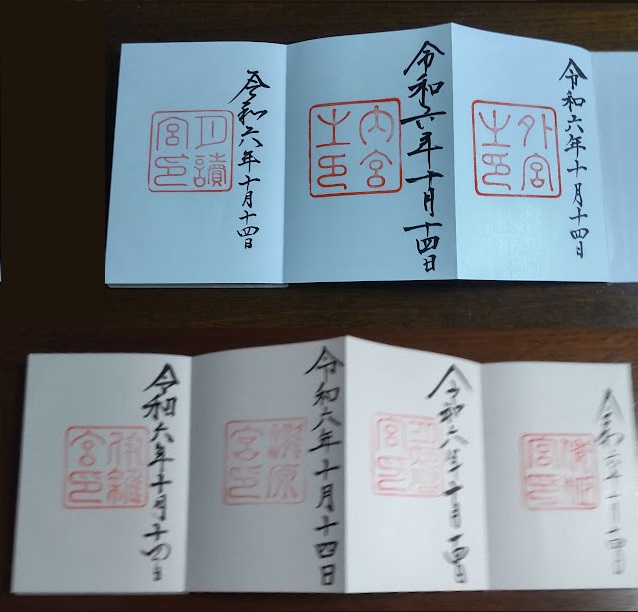 令和六年十月十四日
外宮
之印
令和六年十月十四日
内宮
之印
令和六年十月十四日
月讀
宮印
令和六年十月十四日
倭姫
宮印
令和六年十月十四日
宮印
令和六年十月十四日
瀧原
宮印
令和六年十月十四日
伊雜
宮印